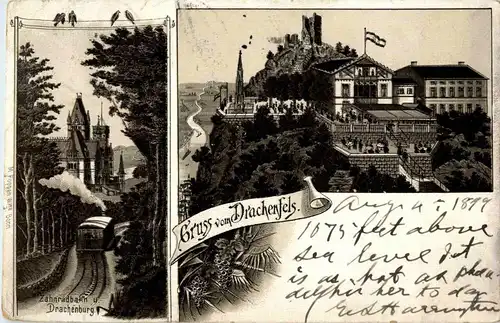 Gruss vom Drachenfels.
Zahnradbahn u.
Drachenburg.
Aug 4 - 1899
1075 feet above
sea level yet it
is as hot as phila
delphia to day